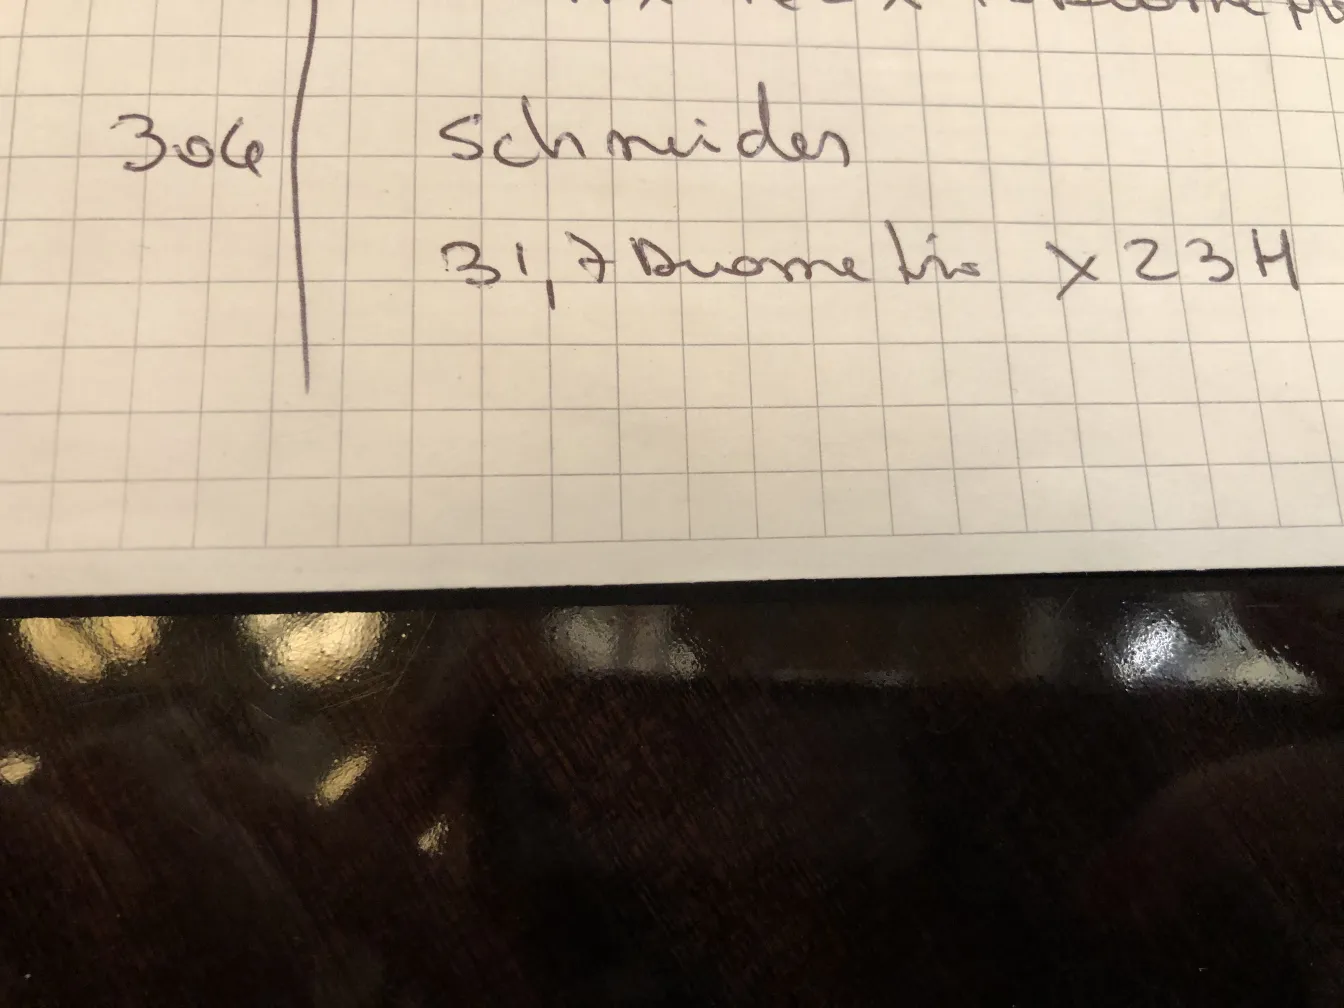 306 Schneider
31,7 Duometrio x 23 H